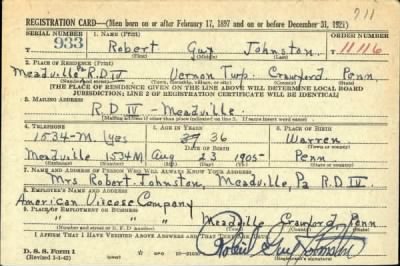 711
REGISTRATION CARD—(Men born on or after February 17, 1897 and on or before December 31, 1921)
SERIAL NUMBER 1. NAME (Print) ORDER NUMBER
933 Robert Guy Johnston 11116
2. PLACE OF RESIDENCE (Print)
Meadville R.D IV Vernon Twp. Crawford, Penn.
(Number and street) (Town, township, village, or city) (County) (State)
[THE PLACE OF RESIDENCE GIVEN ON THE LINE ABOVE WILL DETERMINE LOCAL BOARD
JURISDICTION; LINE 2 OF REGISTRATION CERTIFICATE WILL BE IDENTICAL]
3. MAILING ADDRESS
R.D IV - Meadville.
[Mailing address if other than place indicated on line 2. If same insert word same]
4. TELEPHONE 5. AGE IN YEARS 6. PLACE OF BIRTH
1534-M. yes 36 Warren
DATE OF BIRTH
Meadville 1534M Aug 23 1905 Penn
7. NAME AND ADDRESS OF PERSON WHO WILL ALWAYS KNOW YOUR ADDRESS
Mrs Robert Johnston, Meadville, Pa R.D IV.
8. EMPLOYER'S NAME AND ADDRESS
American Viscose Company
9. PLACE OF EMPLOYMENT OR BUSINESS
" " " Meadville Crawford Penn
(Number and street or R. F. D. number) (Town) (County) (State)
I AFFIRM THAT I HAVE VERIFIED ABOVE ANSWERS AND THAT THEY ARE TRUE.
D. S. S. Form 1
(Revised 1-1-42)
Robert Guy Johnston